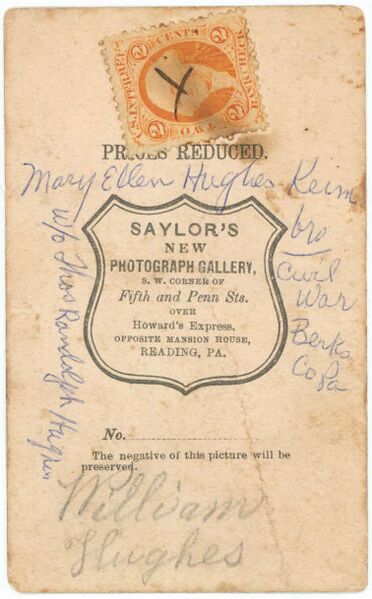 U.S. INTER. REV.
2 CENTS 2
2 TWO 2
PRICES REDUCED.
Mary Ellen Hughes Keim
w/o Thos Randolph Hughes
bro
Civil
War
Berks
Co Pa
SAYLOR'S
NEW
PHOTOGRAPH GALLERY,
S. W. CORNER OF
Fifth and Penn Sts.
OVER
Howard's Express,
OPPOSITE MANSION HOUSE,
READING, PA.
No.
The negative of this picture will be
preserved.
William
Hughes